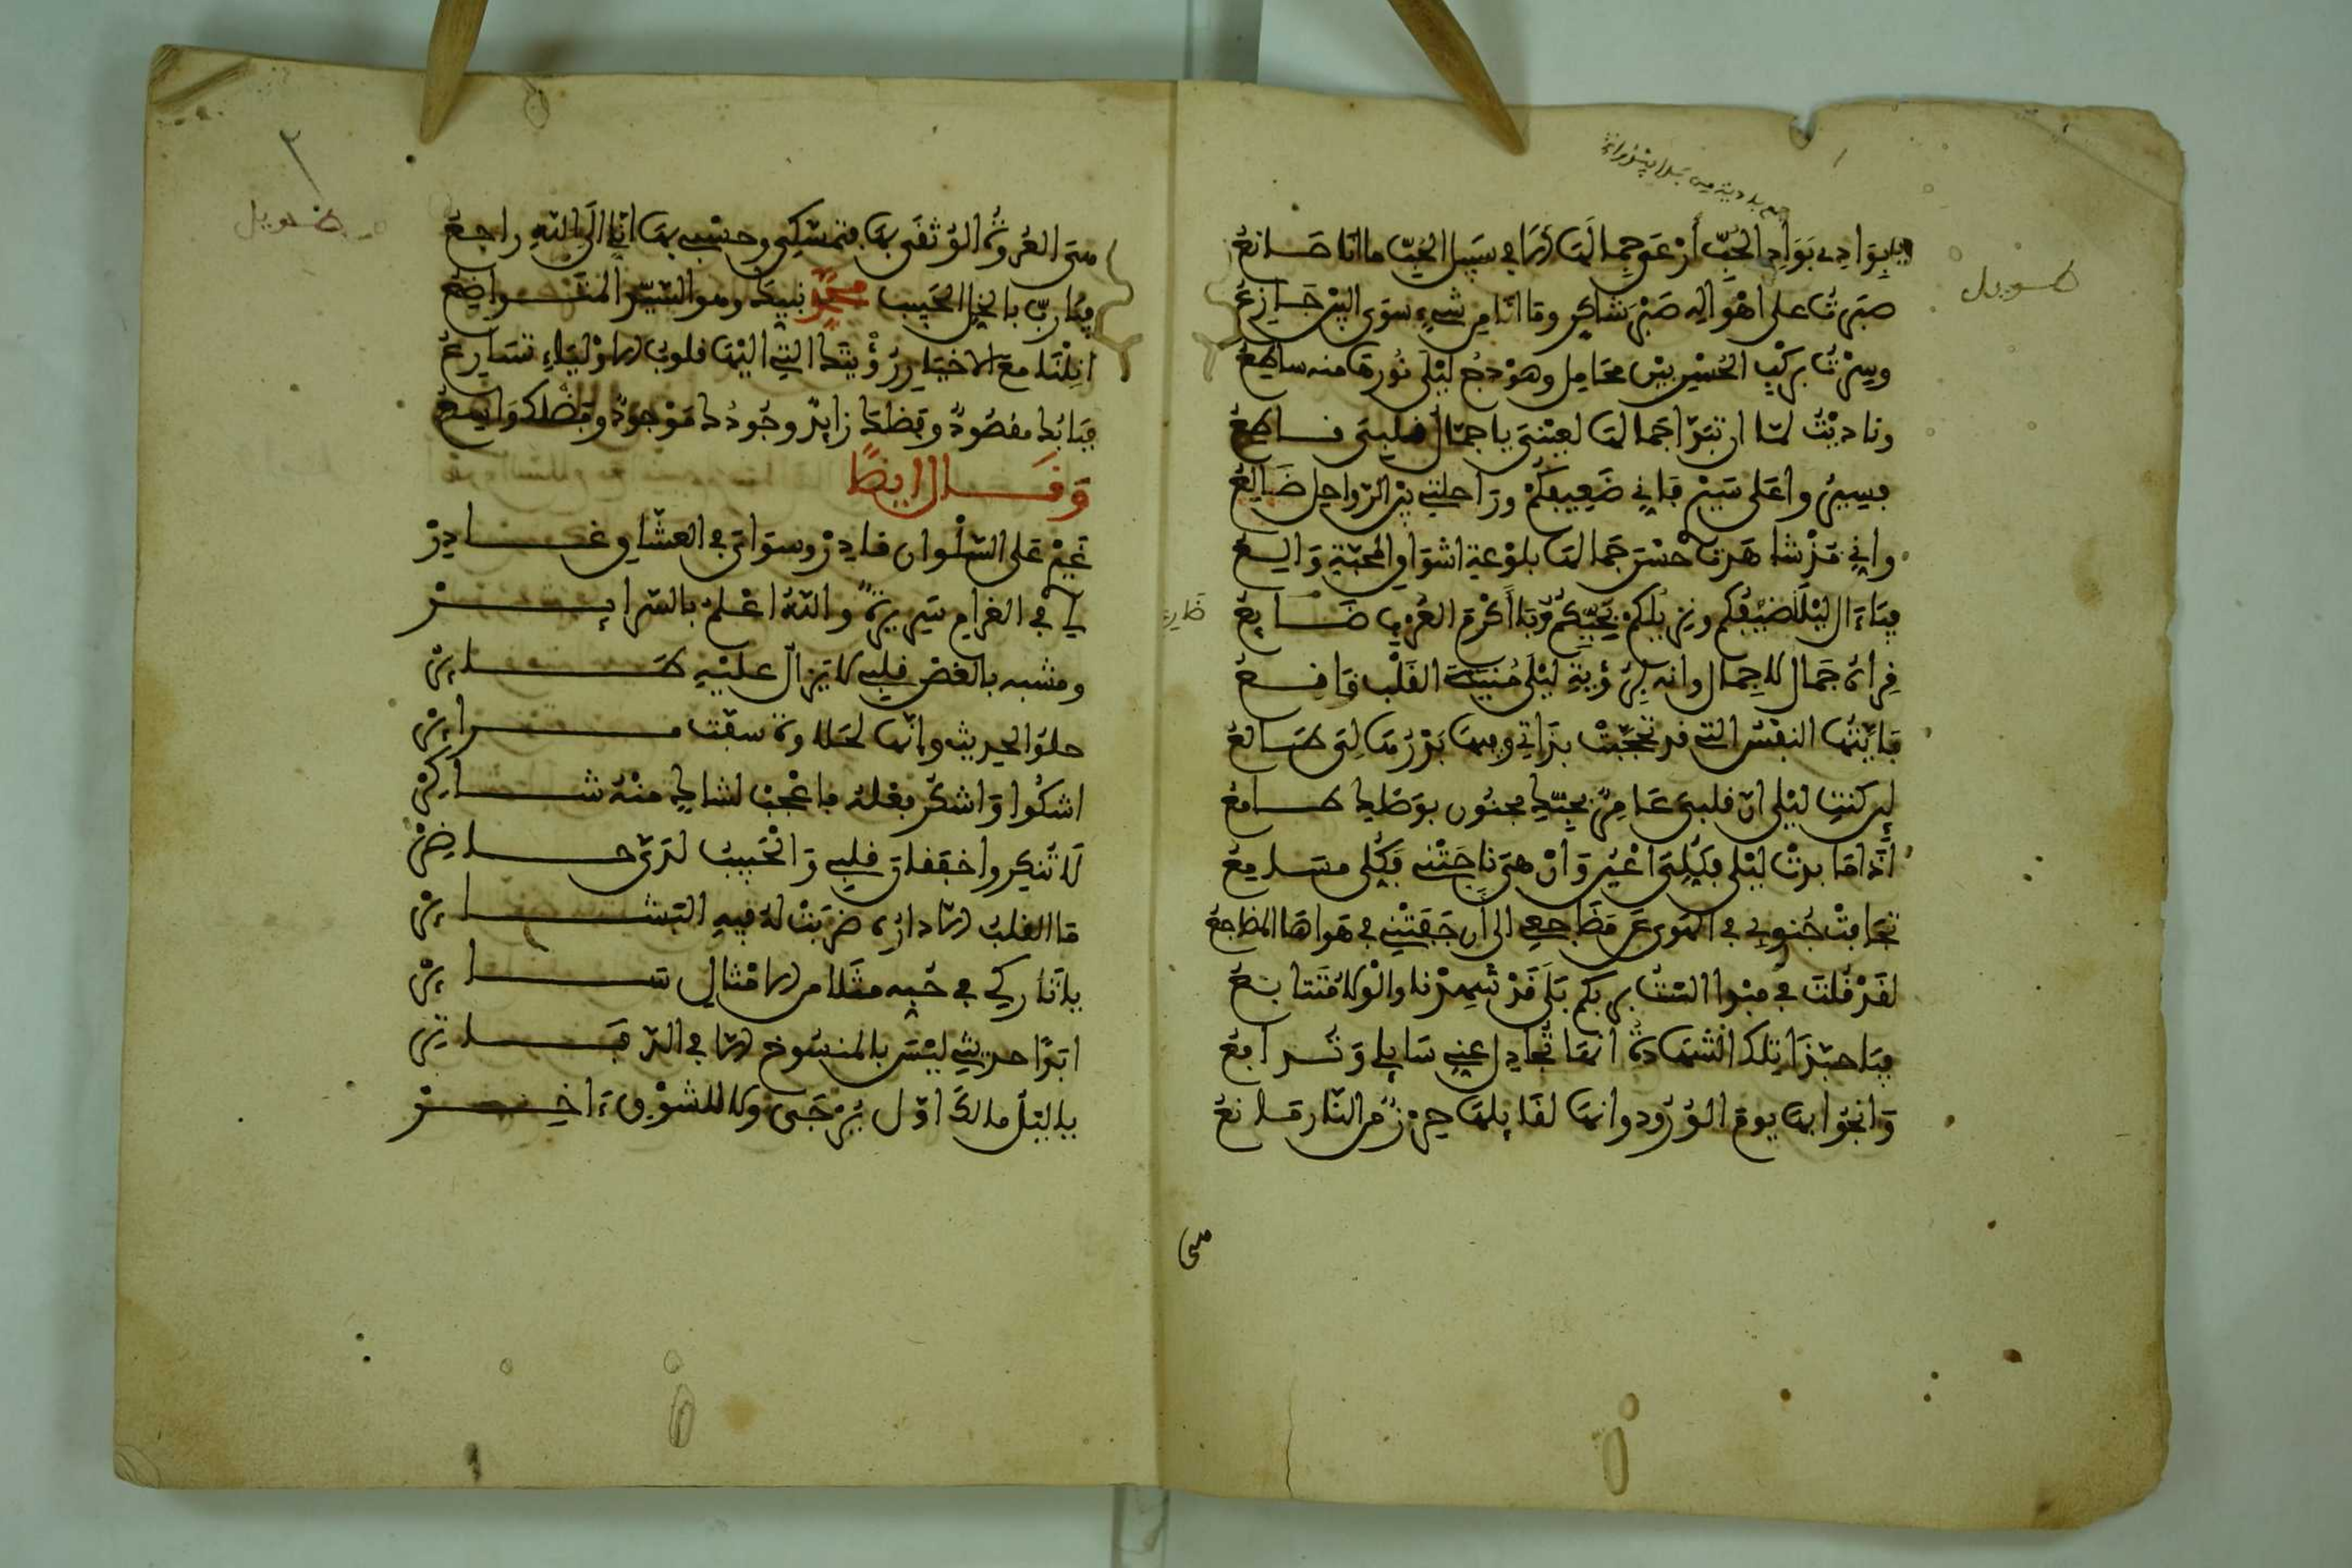 طويل
بوادي بوادي الحب أرعى جمالها ألا في سبيل الحب ما أنا صانع
صبرت على أهواله صبر شاكر وما أنا من شيء سوى البين جازع
وسرت بركب الحسن بين محامل وهودج ليلى نورها منه ساطع
وناديت لما أن تبدا جمالها لعيني يا جمال قلبي قاطع
فسيروا على سيري فإني ضعيفكم وراحلتي بين الرواحل ضالع
وإني مذ شاهدت حسن جمالها بلوعة أشواق المحبة والع
فيا آل ليلى ضيفكم ونزيلكم بحيكم يا أكرم العرب ضايع
قراه جمال لا جمال وإنه برؤية ليلى منية القلب قانع
فأيتها النفس التي قد تحجبت بذاتي وفيها بدرها لي طالع
لين كنت ليلى إن قلبي عامر بحبك مجنون بوصلك طامع
إذا ما بدت ليلى فكلي أعين وإن هي ناجتني فكلي مسامع
تجافت جنوبي في الهوى عن مضاجعي إلى أن جفتني في هواها المضاجع
لقد قلت في مبدا ألست بربكم بلى قد شهدنا والولا متتابع
فيا حبذا تلك الشهادة إنها تجادل عني سايلي وتدافع
وأنجوا بها يوم الورود وإنها لقايلها حرز من النار مانع
هي
٢
طويل
هي العروة الوثقى بها فتمسكي وحسبي بها إني إلى الله راجع
فيا رب بالخل الحبيب محمد نبيك وهو السيد المتواضع
أنلنا مع الأحباب رؤيتك التي إليها قلوب الأولياء تسارع
فبابك مقصود وفضلك زايد وجودك موجود وفضلك واسع
وقال ايضا
غيري على السلوان قادر وسواي في العشاق غادر
لي في الغرام سريرة والله أعلم بالسراير
ومشبه بالغصن قلبي لا يزال عليه طاير
حلو الحديث وإنها لحلاوة شقت مراير
أشكوا وأشكر فعله فاعجب لشاك منه شاكر
لا تنكروا خفقان قلبي والحبيب لدي حاضر
ما القلب إلا داره ضربت له فيه البشاير
يا تاركي في حبه مثلا من الأمثال ساير
أبدا حديثي ليس بالمنسوخ إلا في الدفاتر
يا ليل مالك أول يرجى ولا للشوق آخر